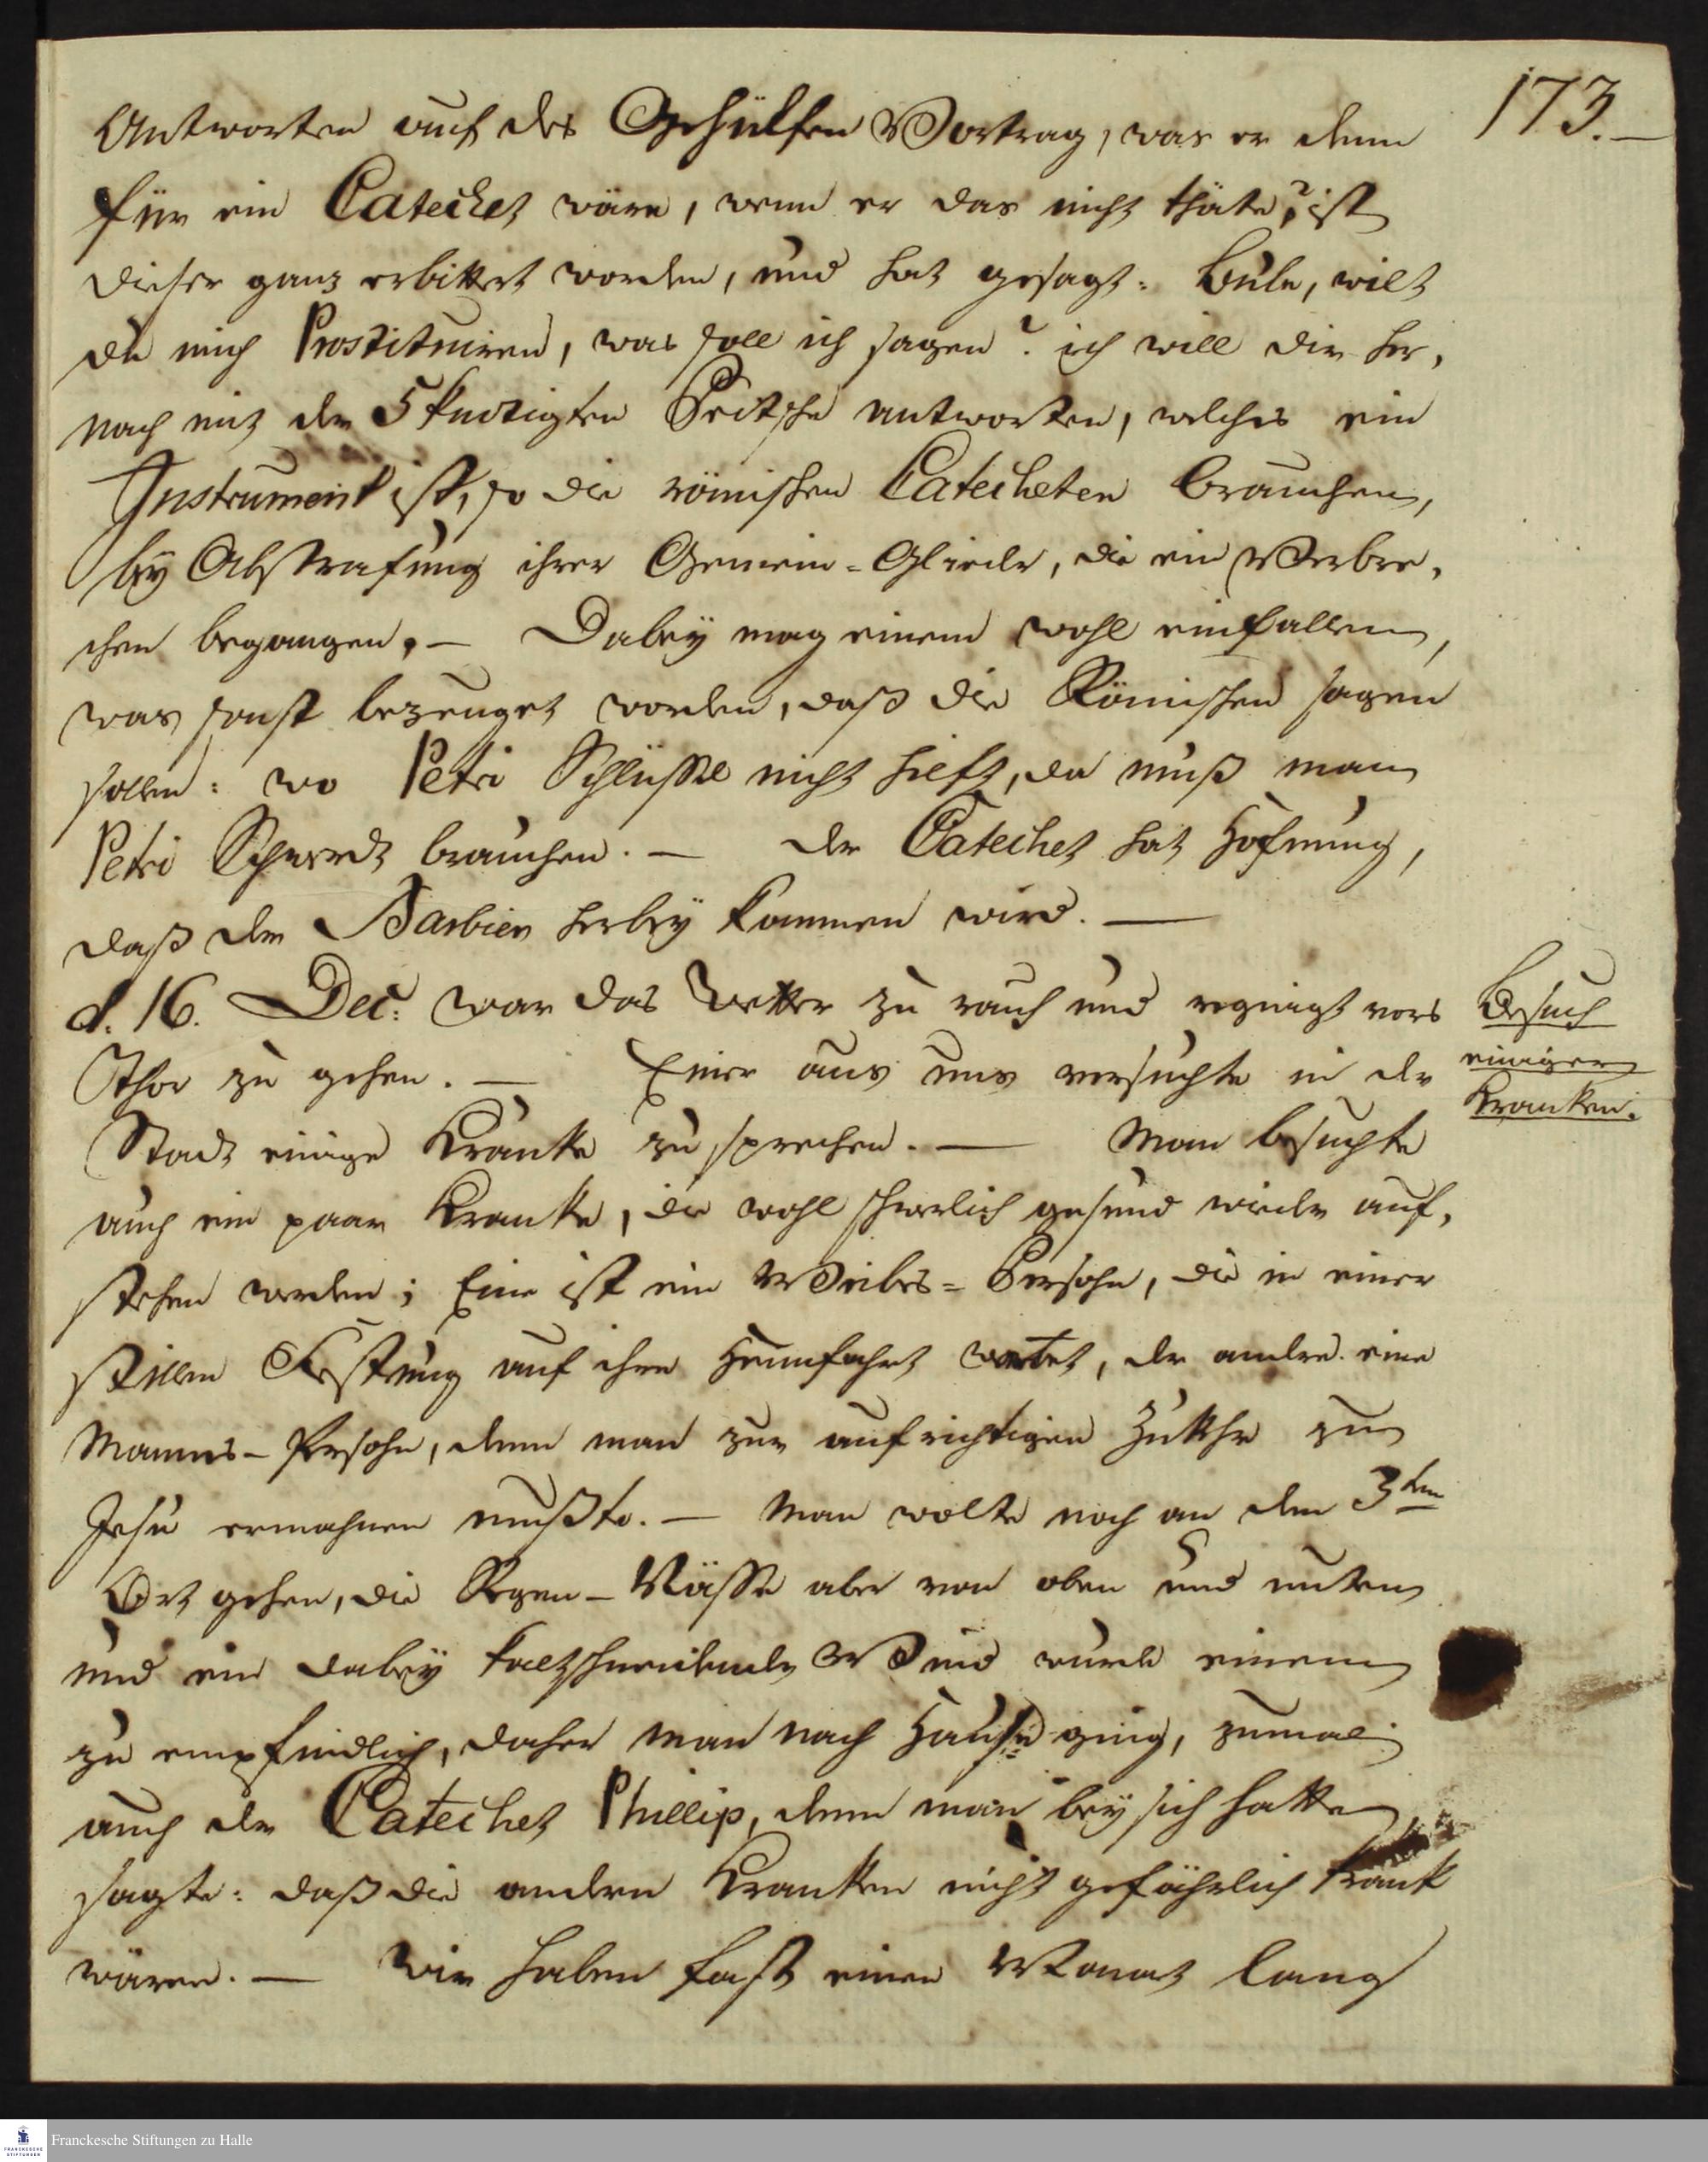 173.
Antworten auf des Gehülfen Vortrag, was er denn
für ein Catechet wäre, wenn er das nicht thäte?, ist
dieser ganz erbittert worden, und hat gesagt: Bube, wilt
du mich Prostituiren, was soll ich sagen? ich will dir her,
nach mit der 5 knotigten Peitsche antworten, welches ein
Instrument ist, so die römischen Catecheten brauchen,
bey Abstrafung ihrer Gemein-Glieder, die ein Verbre,
chen begangen. – Dabey mag einem wohl einfallen,
was sonst bezeuget worden, daß die Römischen sagen
sollen: wo Petri Schlüssel nicht hilft, da muß man
Petri Schwerdt brauchen. – der Catechet hat Hofnung,
daß der Barbier herbey kommen wird. –
d. 16. Dec: war das Wetter zu rauh und regnigt vors
Thor zu gehen. – Einer aus uns versuchte in der
Stadt einige Kranke zu sprechen. – Man besuchte
auch ein paar Kranke, die wohl schwerlich gesund wieder auf,
stehen werden; Eine ist ein Weibes-Persohn, die in einer
stillen Fassung auf ihre Heimfahrt wartet, der andre eine
Manns-Persohn, denn man zur aufrichtigen Zukehr zu
Jesu ermahnen mußte. – Man wolte noch an den 3ten
Ort gehen, die Regen-Nässe aber von oben und unten
und ein dabey kaltschneidender Wind wurde einem
zu empfindlich, daher man nach Hause ging, zumal
auch der Catechet Phillip, denn man bey sich hatte,
sagte: daß die andern Kranken nicht gefährlich krank
wären. – Wir haben fast einen Monat lang
Besuch
einiger
Kranken.
Franckesche Stiftungen zu Halle